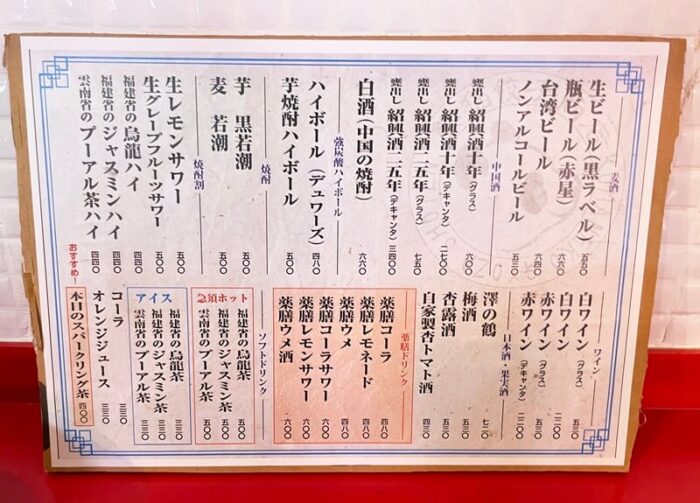 麦酒
生ビール(黒ラベル) 五五〇
瓶ビール(赤星) 六六〇
台湾ビール 六四〇
ノンアルコールビール 五三〇
中国酒
甕出し 紹興酒十年(グラス) 六六〇
甕出し 紹興酒十年(デキャンタ) 二七〇〇
甕出し 紹興酒二五年(グラス) 七五〇
甕出し 紹興酒二五年(デキャンタ) 三四〇〇
白酒(中国の焼酎) 六六〇
強炭酸ハイボール
ハイボール(デュワーズ) 四八〇
芋焼酎ハイボール 五〇〇
焼酎
芋 黒若潮 五〇〇
麦 若潮 五〇〇
焼酎割
生レモンサワー 五〇〇
生グレープフルーツサワー 五〇〇
福建省の烏龍ハイ 四四〇
福建省のジャスミンハイ 四四〇
雲南省のプーアル茶ハイ 四四〇
ワイン
白ワイン(グラス) 五三〇
白ワイン 二二〇〇
赤ワイン(グラス) 五三〇
赤ワイン(デキャンタ) 二二〇〇
日本酒・果実酒
澤の鶴 七二〇
梅酒 五三〇
杏露酒 五三〇
自家製杏トマト酒 四三〇
薬膳ドリンク
薬膳コーラ 四八〇
薬膳レモネード 四八〇
薬膳ウメ 四八〇
薬膳コーラサワー 六〇〇
薬膳レモンサワー 六〇〇
薬膳ウメ酒 六〇〇
ソフトドリンク
急須ホット
福建省の烏龍茶 五〇〇
福建省のジャスミン茶 五〇〇
雲南省のプーアル茶 五〇〇
アイス
福建省の烏龍茶 三三〇
福建省のジャスミン茶 三三〇
雲南省のプーアル茶 三三〇
コーラ 三三〇
オレンジジュース 三三〇
おすすめ!
本日のスパークリング茶 四〇〇